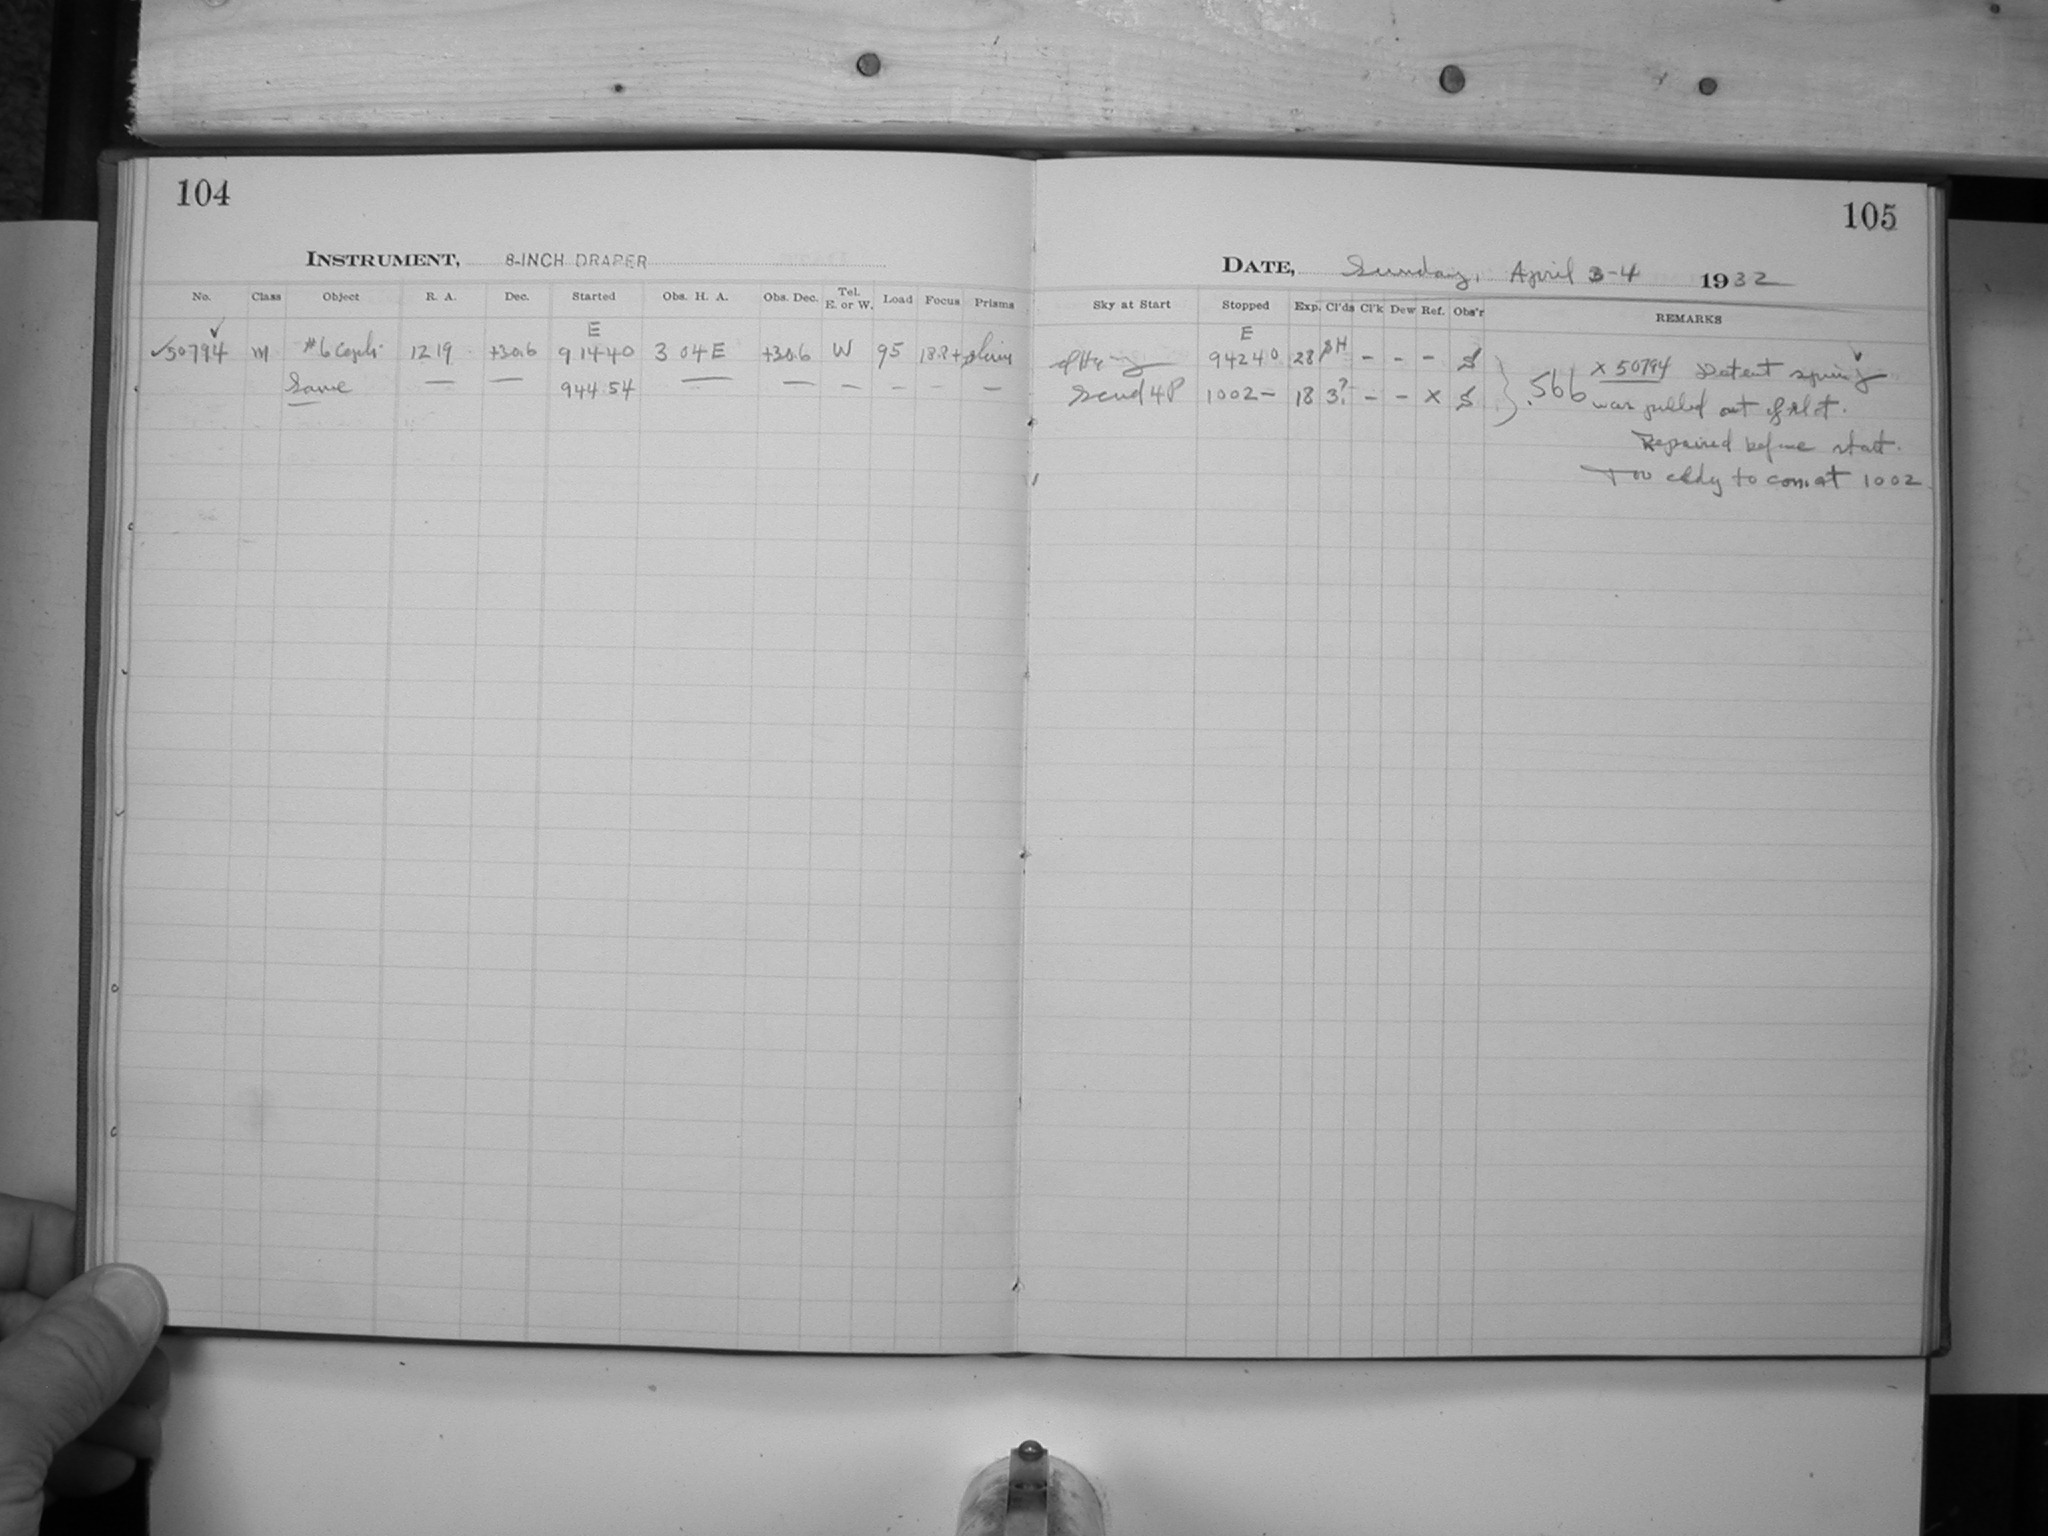 104
105
INSTRUMENT, 8-INCH DRAPER
DATE, Sunday, April 3-4 1932
No. Class Object R. A. Dec. Started Obs. H. A. Obs. Dec. Tel. E. or W. Load Focus Prisms
Sky at Start Stopped Exp. Cl'ds Cl'k Dew Ref. Obs'r REMARKS
E
E
✓50794 m #6 Ceph. 12 19 +30.6 9 14 40 3 04 E +30.6 W 95
9 42 40 28 SH – – – S
Same — — 9 44 54 — — — – – —
Scud 4P 10 02 – 18 3? – – x S
.566
x 50794 Detent spring
was pulled out of slot.
Repaired before start.
Too cldy to con. at 10 02